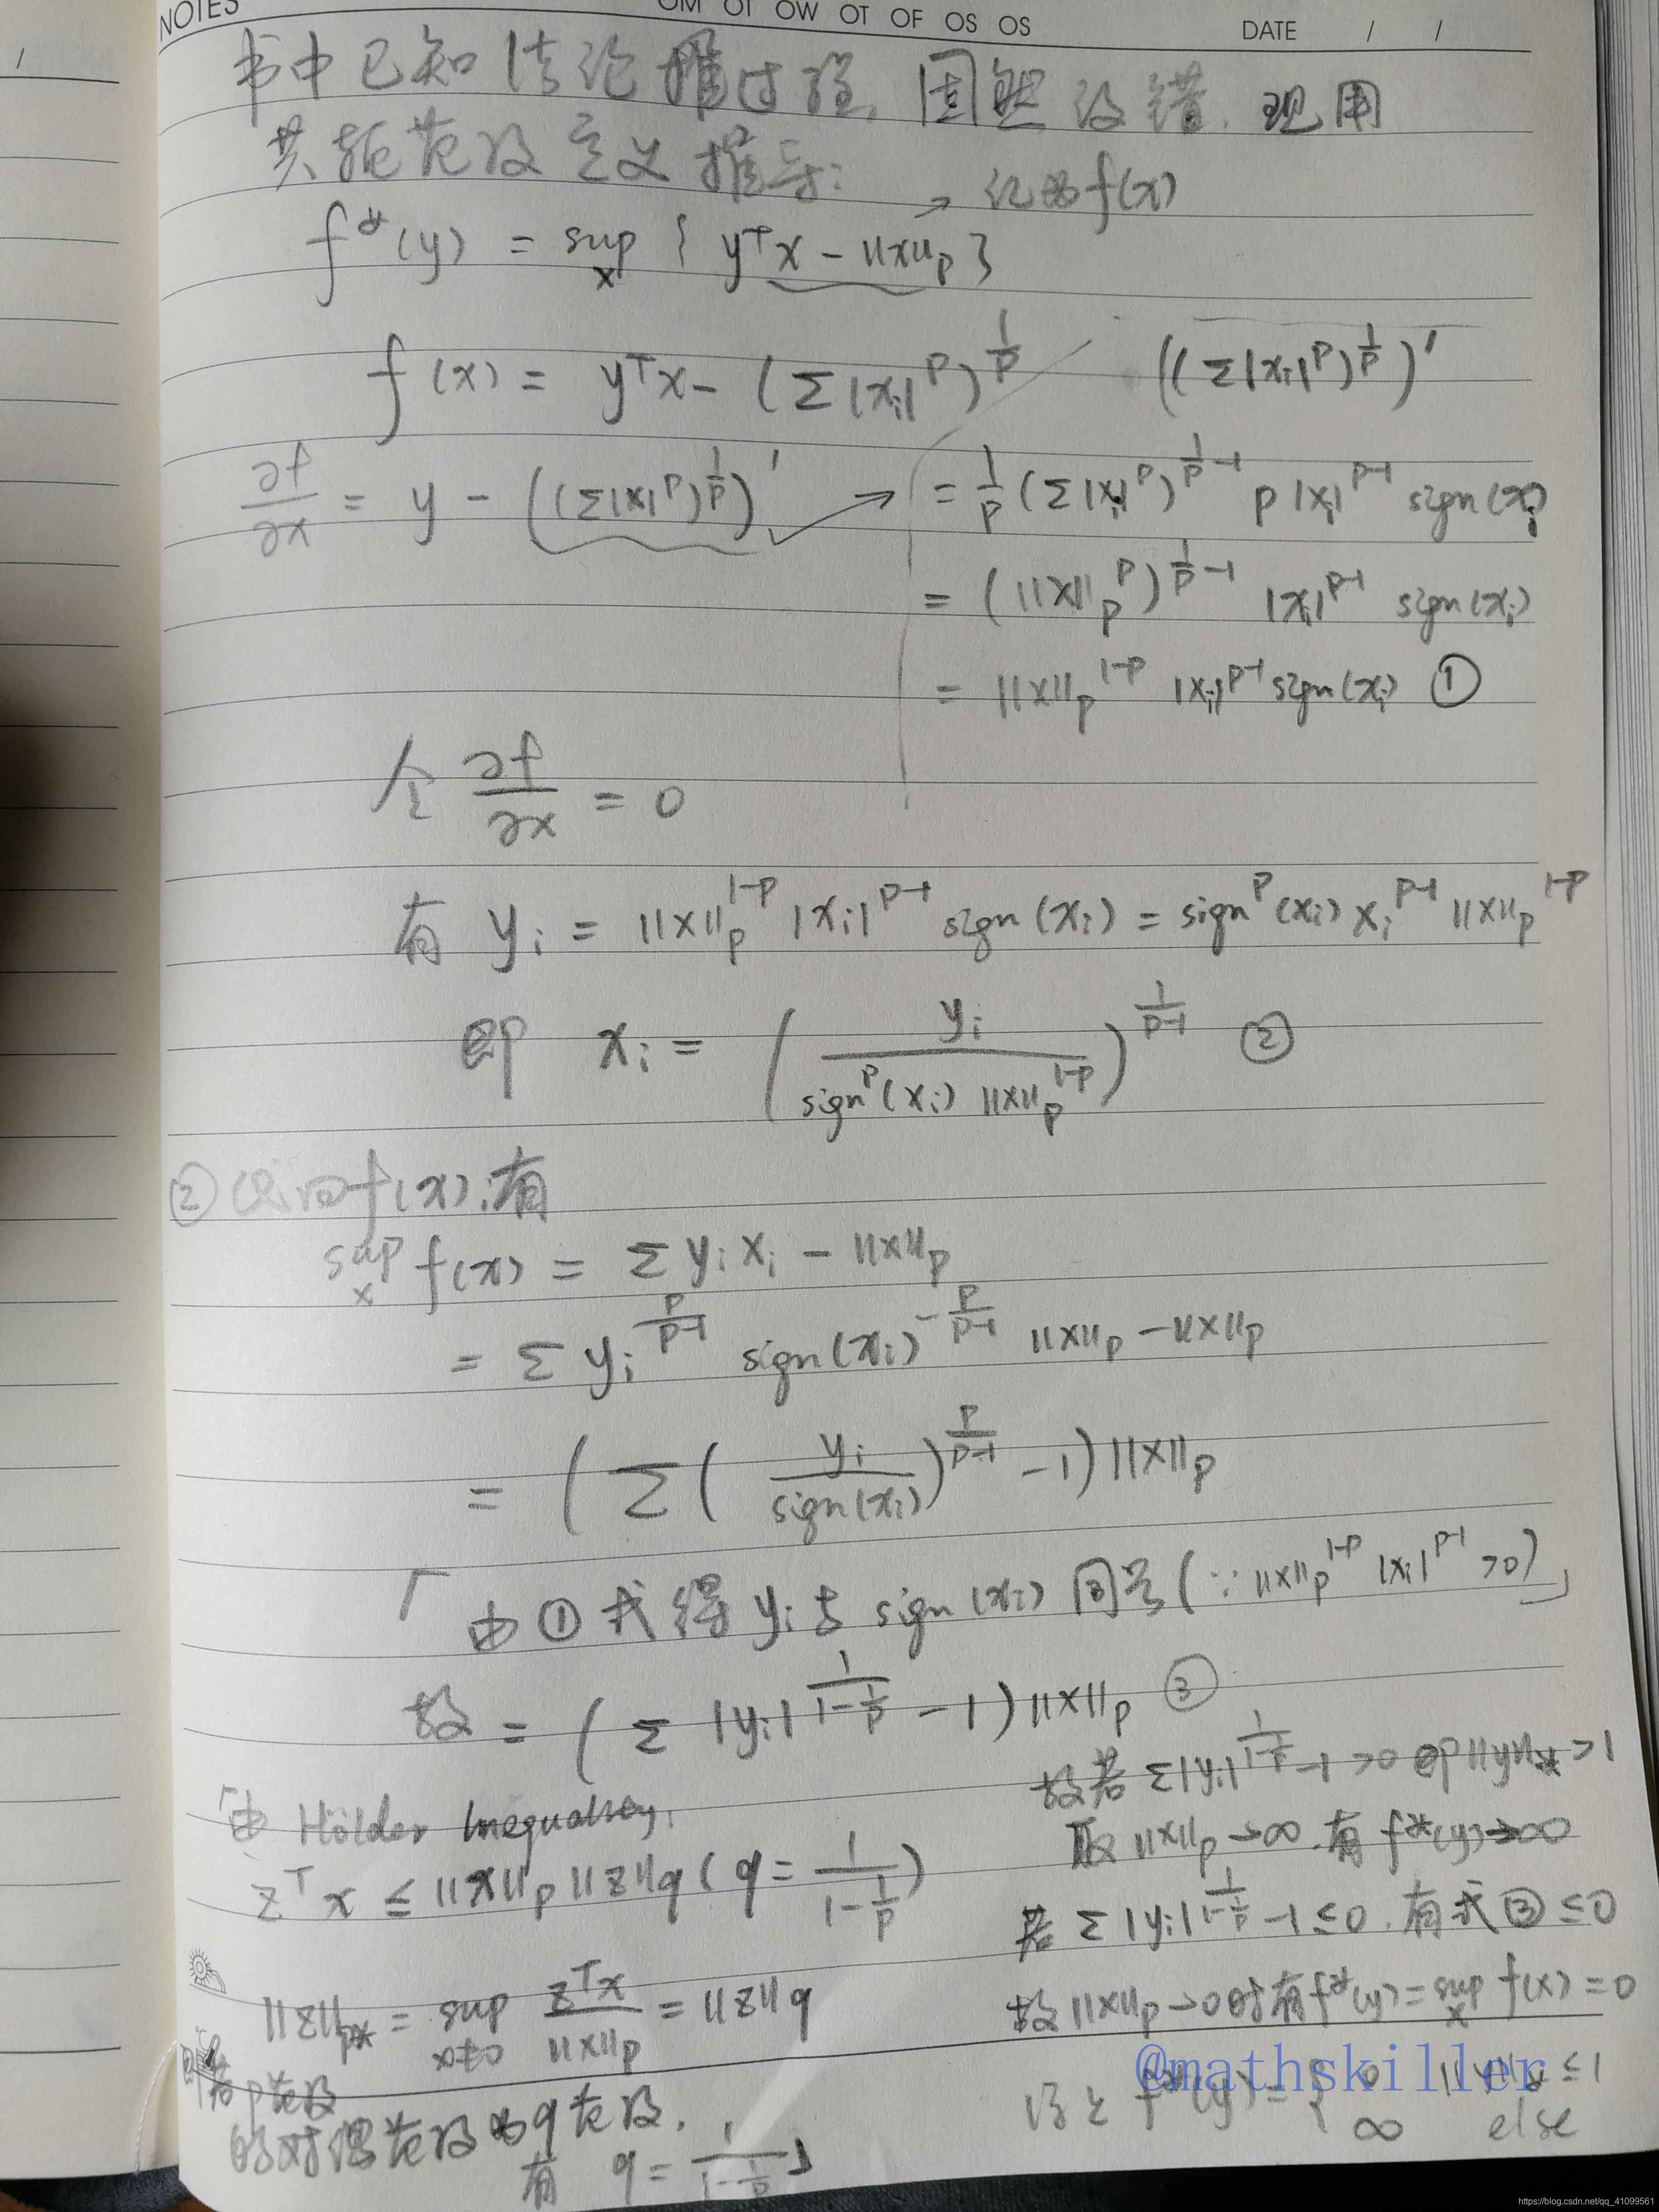 NOTES
OM OT OW OT OF OS OS
DATE / /
书中已知结论推过程, 固然没错, 现用
共轭范数定义推导:
→ 记为 f(x)
f*(y) = sup_x { yᵀx - ||x||_p }
f(x) = yᵀx - (Σ|x_i|^p)^{1/p}
((Σ|x_i|^p)^{1/p})'
∂f/∂x = y - ((Σ|x_i|^p)^{1/p})' → = 1/p (Σ|x_i|^p)^{1/p-1} p |x_i|^{p-1} sign(x_i)
= (||x||_p^p)^{1/p-1} |x_i|^{p-1} sign(x_i)
= ||x||_p^{1-p} |x_i|^{p-1} sign(x_i) ①
令 ∂f/∂x = 0
有 y_i = ||x||_p^{1-p} |x_i|^{p-1} sign(x_i) = sign^p(x_i) x_i^{p-1} ||x||_p^{1-p}
即 x_i = ( y_i / (sign^p(x_i) ||x||_p^{1-p}) )^{1/(p-1)} ②
② 代回 f(x), 有
sup_x f(x) = Σ y_i x_i - ||x||_p
= Σ y_i^{p/(p-1)} sign(x_i)^{-p/(p-1)} ||x||_p - ||x||_p
= ( Σ ( y_i / sign(x_i) )^{p/(p-1)} - 1 ) ||x||_p
「由①式得 y_i 与 sign(x_i) 同号 (∵ ||x||_p^{1-p} |x_i|^{p-1} > 0)」
故 = ( Σ |y_i|^{1/(1-1/p)} - 1 ) ||x||_p ③
「由 Hölder Inequality,
zᵀx ≤ ||x||_p ||z||_q ( q = 1/(1-1/p) )
||z||_{p*} = sup_{x≠0} zᵀx / ||x||_p = ||z||_q
即若p范数
的对偶范数为q范数,
有 q = 1/(1-1/p)」
故若 Σ|y_i|^{1/(1-1/p)} - 1 > 0 即 ||y||_* > 1
取 ||x||_p → ∞, 有 f*(y) → ∞
若 Σ|y_i|^{1/(1-1/p)} - 1 ≤ 0, 有式③ ≤ 0
故 ||x||_p → 0 时有 f*(y) = sup_x f(x) = 0
综上 f*(y) = { 0 ||y||_* ≤ 1
∞ else
@mathskiller
https://blog.csdn.net/qq_41099561